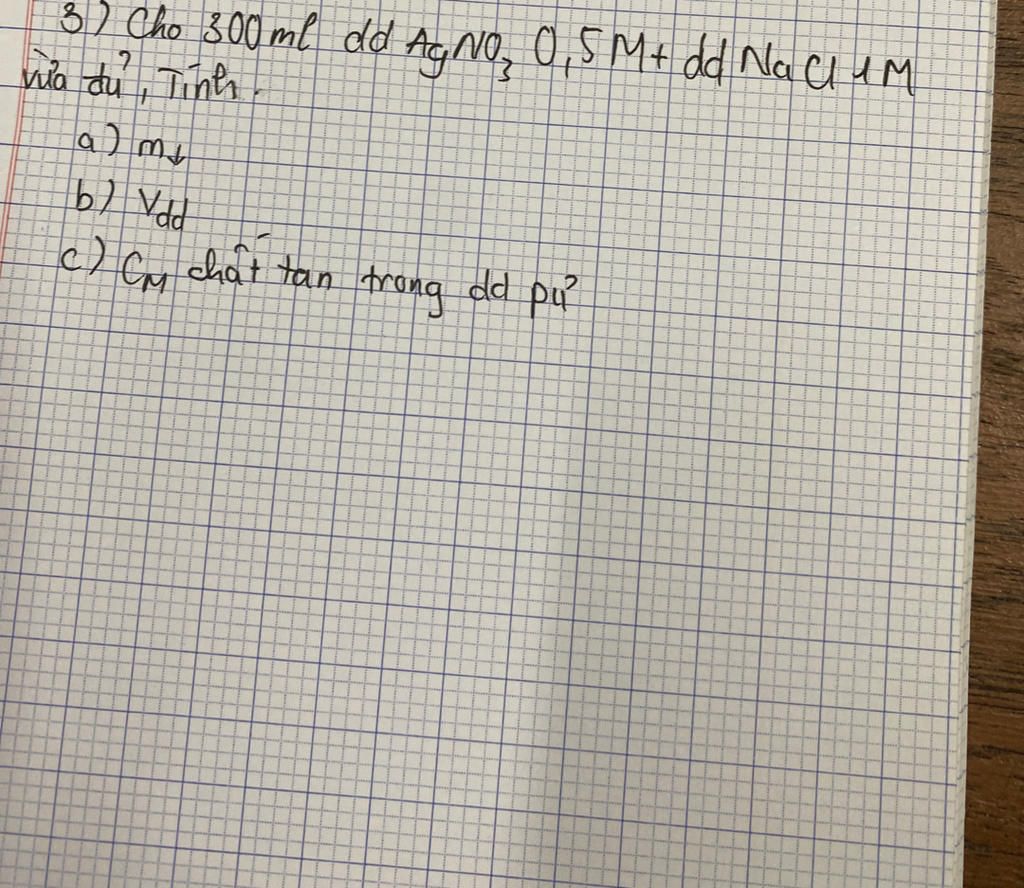 3) Cho 300ml dd AgNO₃ 0,5M + dd NaCl 1M
vừa đủ, Tính.
a) m↓
b) Vdd
c) CM chất tan trong dd pứ